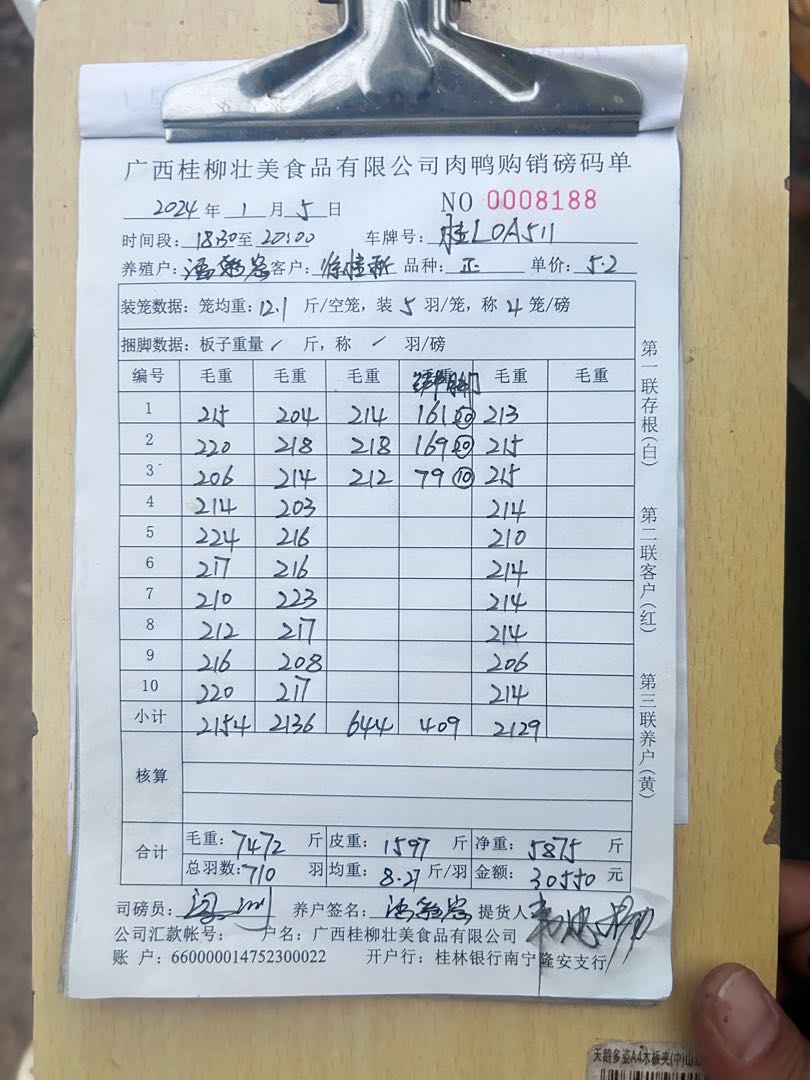 广西桂柳壮美食品有限公司肉鸭购销磅码单
2024 年 1 月 5 日 NO 0008188
时间段: 18:30 至 20:00 车牌号: 桂L0A511
养殖户: 客户: 徐桂新 品种: 正 单价: 5.2
装笼数据: 笼均重: 12.1 斤/空笼, 装 5 羽/笼, 称 4 笼/磅
捆脚数据: 板子重量 / 斤, 称 / 羽/磅
编号 毛重 毛重 毛重 毛重 毛重
1 215 204 214 161 20 213
2 220 218 218 169 20 215
3 206 214 212 79 10 215
4 214 203 214
5 224 216 210
6 217 216 214
7 210 223 214
8 212 217 214
9 216 208 206
10 220 217 214
小计 2154 2136 644 409 2129
核算
合计 毛重: 7472 斤 皮重: 1597 斤 净重: 5875 斤
总羽数: 710 羽 均重: 8.27 斤/羽 金额: 30550 元
司磅员: 养户签名: 提货人:
公司汇款帐号: 户名: 广西桂柳壮美食品有限公司
账 户: 660000014752300022 开户行: 桂林银行南宁隆安支行
第一联存根(白)
第二联客户(红)
第三联养户(黄)
天鹅多姿A4木板夹(中)山